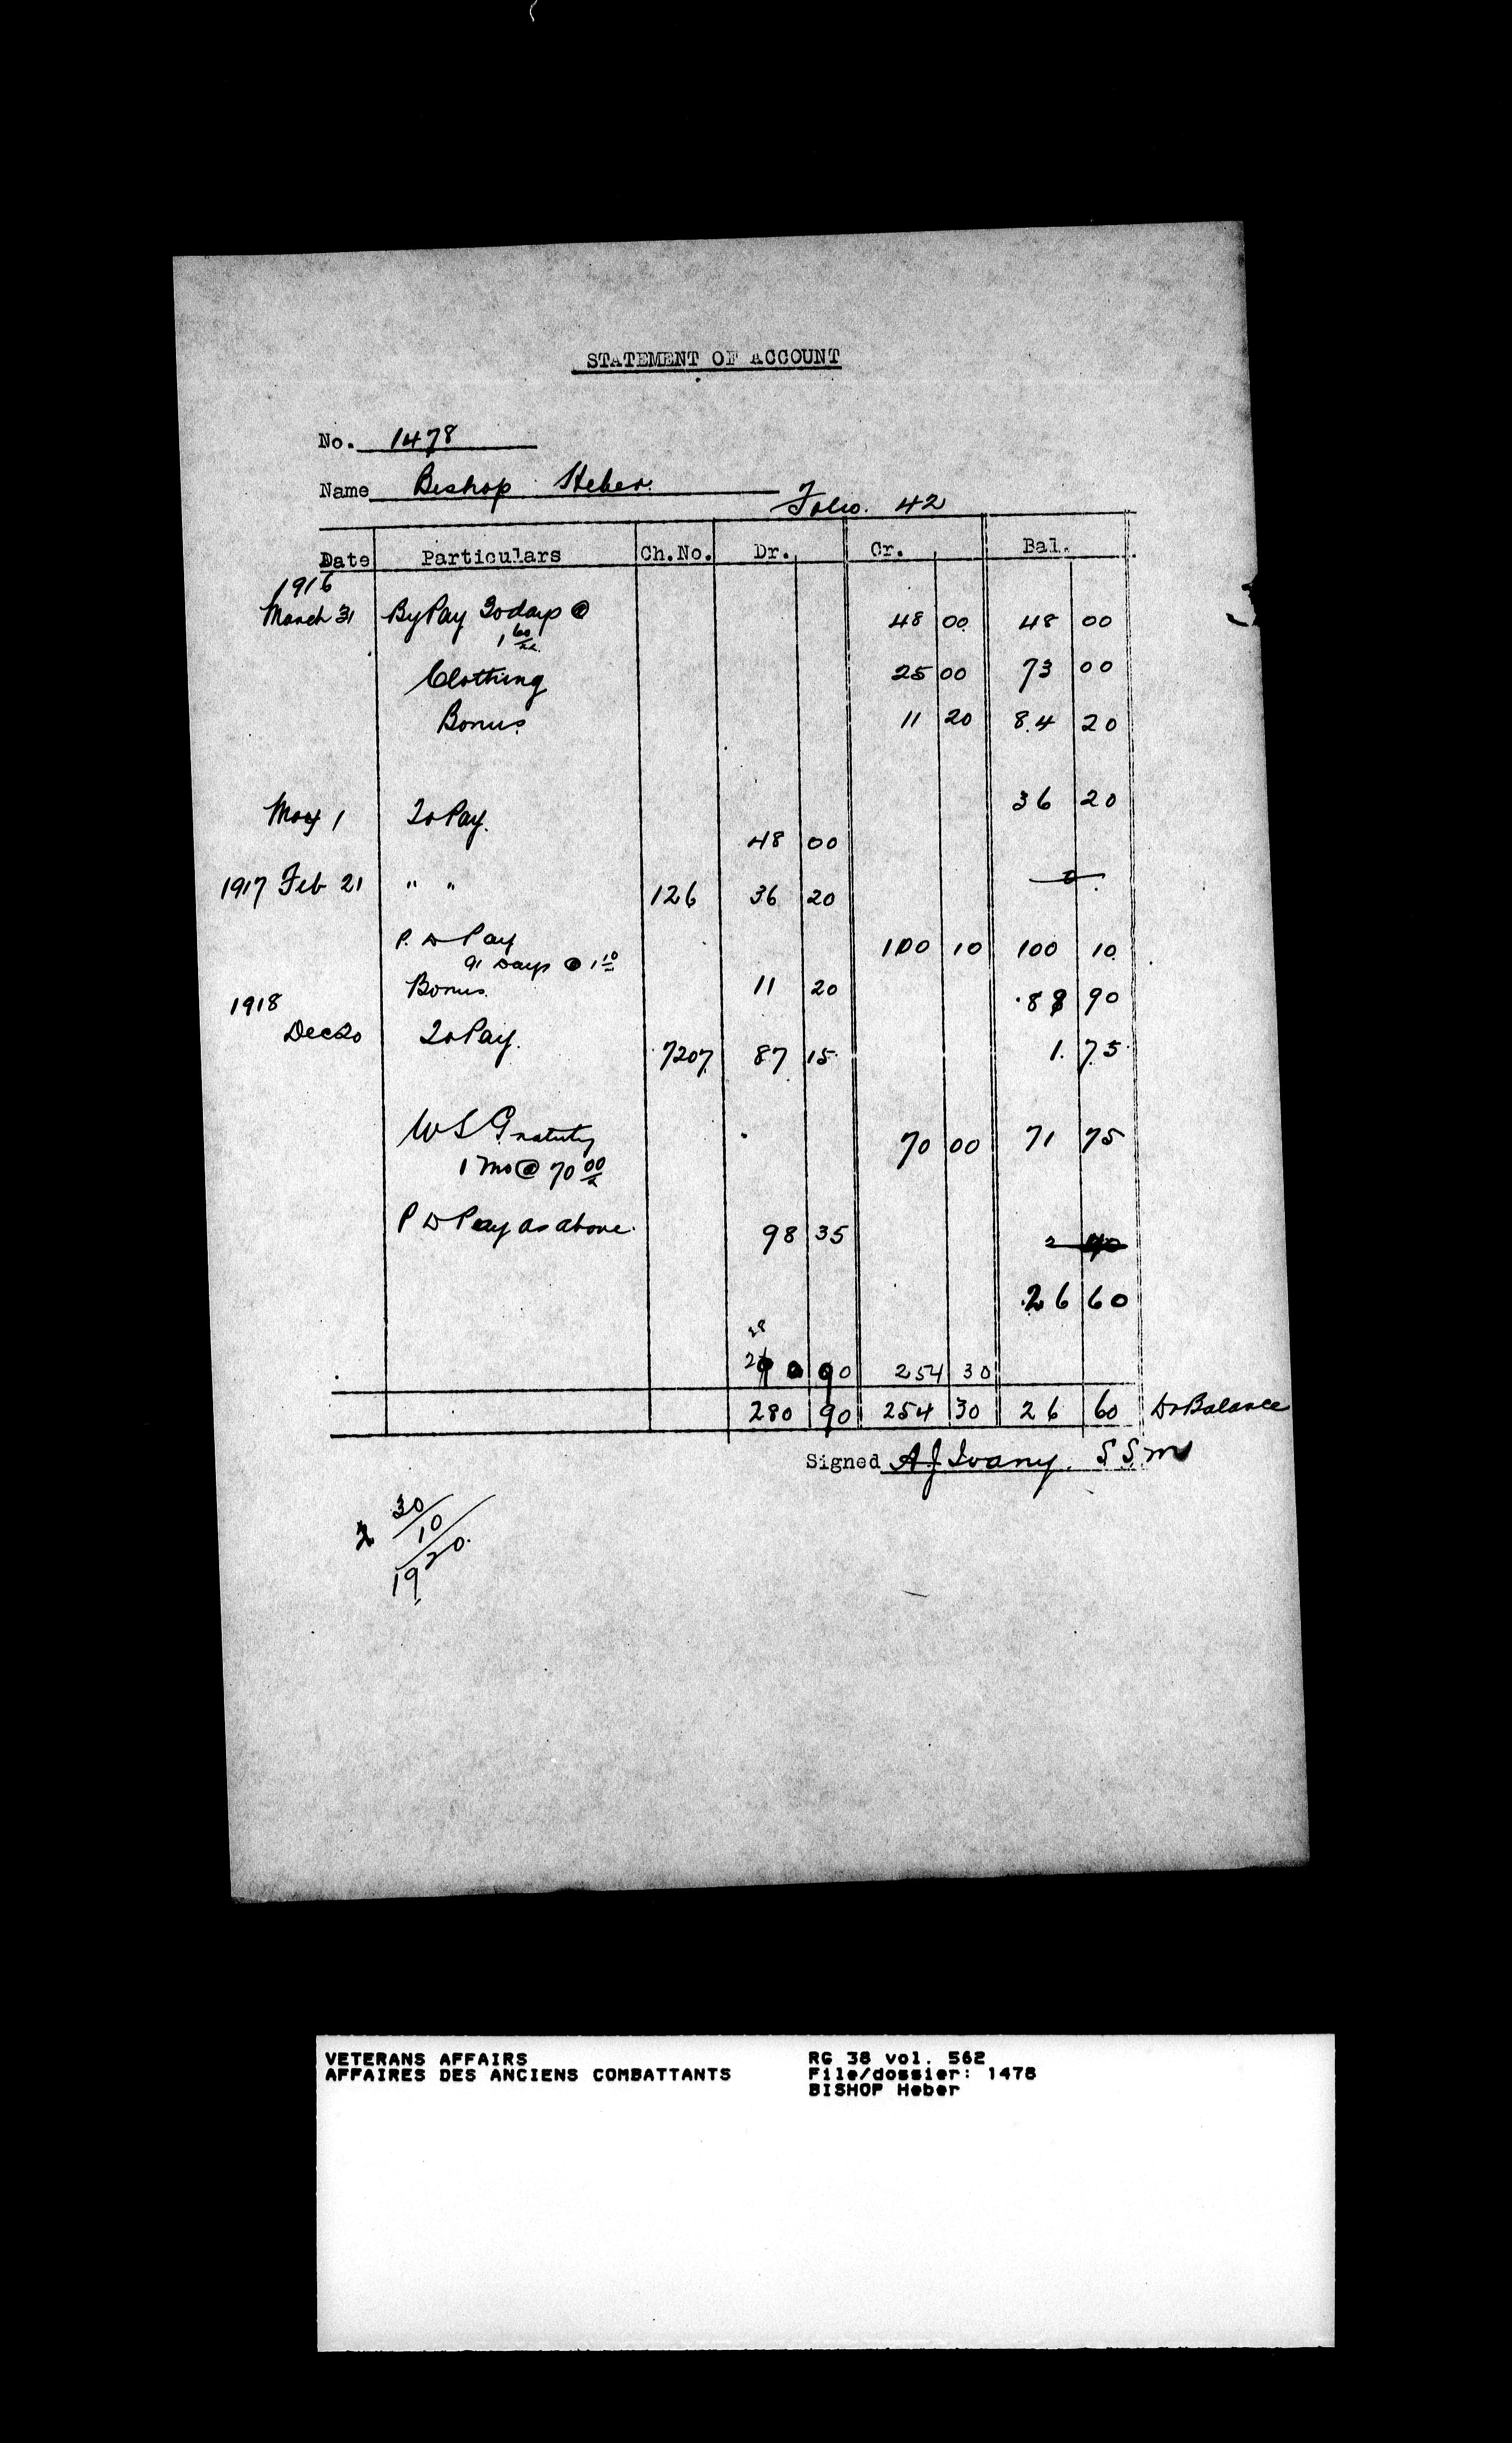 STATEMENT OF ACCOUNT
No. 1478
Name Bishop Heber.
Folio. 42
Date Particulars Ch.No. Dr. Cr. Bal.
1916
March 31 By Pay 30 days @ 48 00 48 00
1 60
Clothing 25 00 73 00
Bonus 11 20 84 20
May 1 To Pay. 36 20
48 00
1917 Feb 21 " " 126 36 20 0
P. D Pay 100 10 100 10
91 Days @ 1 10
Bonus. 11 20 88 90
1918
Dec 20 To Pay. 7207 87 15 1. 75
W S Gratuity 70 00 71 75
1 Mo @ 70 00
P D Pay as above. 98 35
26 60
90 254 30
280 90 254 30 26 60 Dr Balance
Signed A J Ivany. S S M
30
2 10
19 20
VETERANS AFFAIRS RG 38 vol. 562
AFFAIRES DES ANCIENS COMBATTANTS File/dossier: 1478
BISHOP Heber